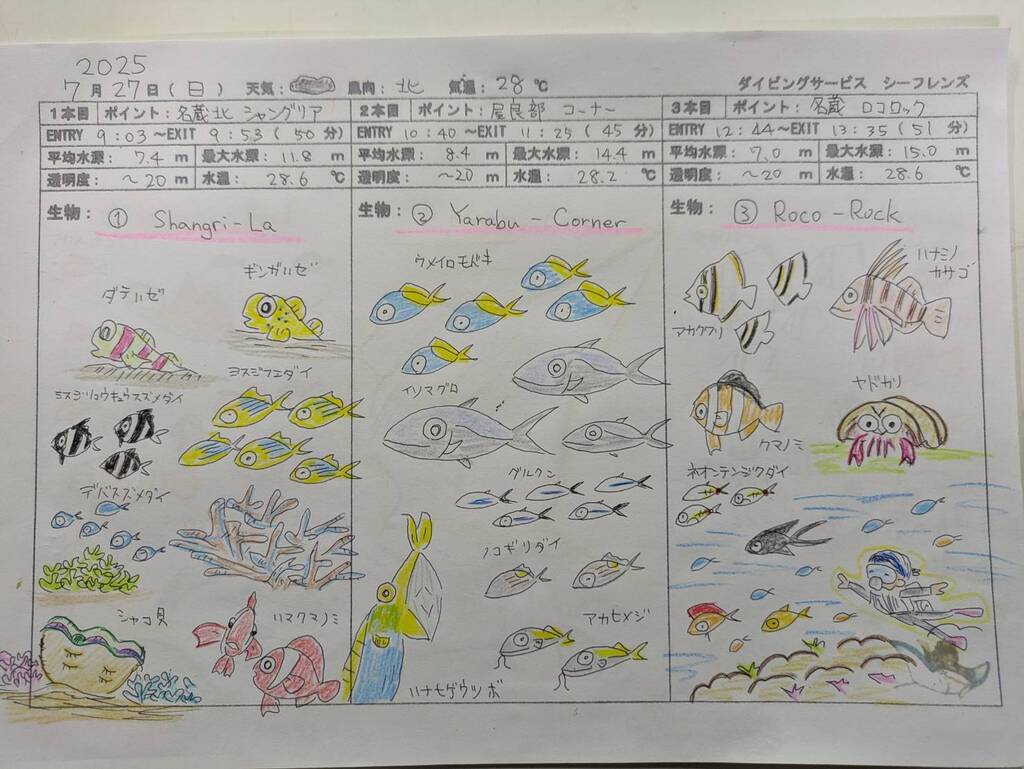 2025
7月27日(日) 天気: 風向: 北 気温: 28℃ ダイビングサービス シーフレンズ
1本目 ポイント: 名蔵北 シャングリア
ENTRY 9:03～EXIT 9:53(50分)
平均水深: 7.4 m 最大水深: 11.8 m
透明度: ～20 m 水温: 28.6 ℃
生物: ① Shangri-La
ギンガハゼ
ダテハゼ
ヨスジフエダイ
ミスジリュウキュウスズメダイ
デバスズメダイ
シャコ貝
ハマクマノミ
2本目 ポイント: 屋良部 コーナー
ENTRY 10:40～EXIT 11:25(45分)
平均水深: 8.4 m 最大水深: 14.4 m
透明度: ～20 m 水温: 28.2 ℃
生物: ② Yarabu-Corner
ウメイロモドキ
イソマグロ
グルクン
ノコギリダイ
アカヒメジ
ハナヒゲウツボ
3本目 ポイント: 名蔵 ロコロック
ENTRY 12:44～EXIT 13:35(51分)
平均水深: 7.0 m 最大水深: 15.0 m
透明度: ～20 m 水温: 28.6 ℃
生物: ③ Roco-Rock
ハナミノ
カサゴ
ヤドカリ
クマノミ
ネオンテンジクダイ